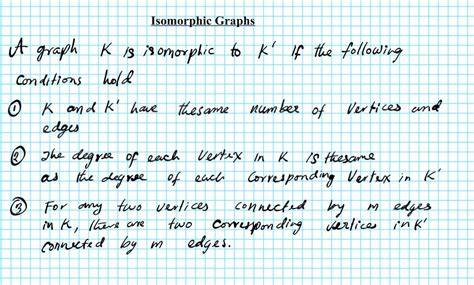 Isomorphic Graphs
A graph K is isomorphic to K' if the following
Conditions hold
① K and K' have thesame number of vertices and
edges
② The degree of each Vertex in K is thesame
as the degree of each Corresponding Vertex in K'
③ For any two vertices connected by m edges
in K, there are two Corresponding vertices in K'
Connected by m edges.